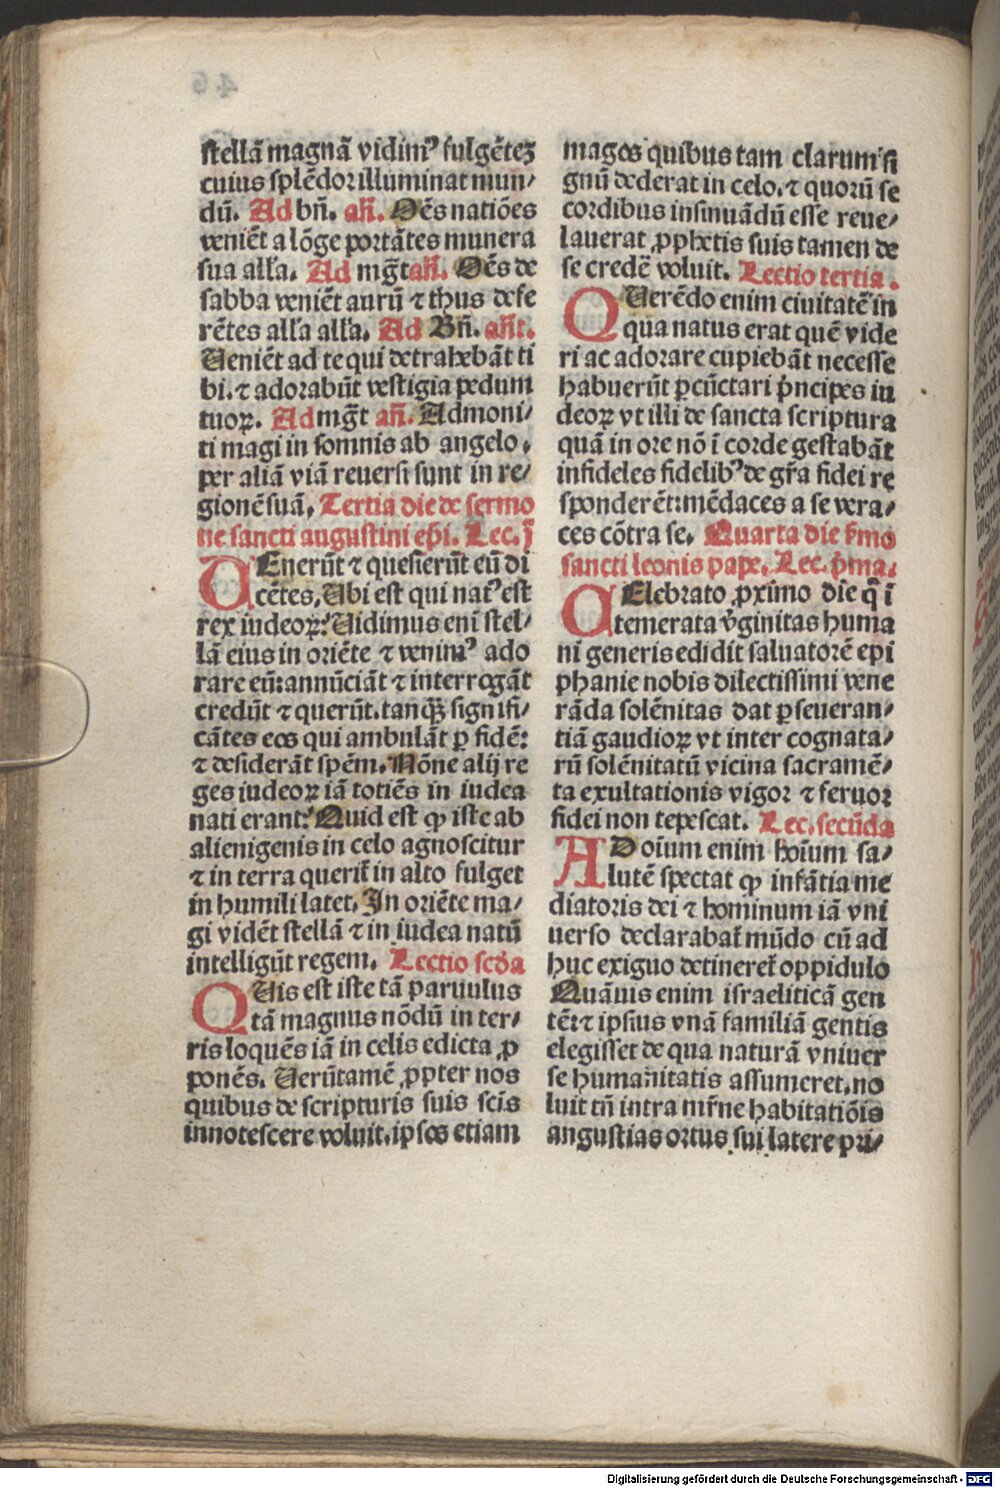 stellã magnã vidimꝰ fulgẽtez
cuius splẽdor illuminat mun⸗
dũ. Ad bñ. añ. Oẽs natiões
veniẽt a lõge portãtes munera
sua alľa. Ad mgt̃ añ. Oẽs de
sabba veniẽt aurũ ⁊ thus defe
rẽtes alľa alľa. Ad Bñ. añt.
Ueniẽt ad te qui detrahebãt ti
bi. ⁊ adorabũt vestigia pedum
tuoꝝ. Ad mg̃t añ. Admoni⸗
ti magi in somnis ab angelo.
per aliã viã reuersi sunt in re⸗
gionẽ suã. Tertia die de sermo
ne sancti augustini ep̃i. Lec. j̄
UEnerũt ⁊ quesierũt eũ di
cẽtes. Ubi est qui natꝰ est
rex iudeoꝝ: Uidimus eni stel⸗
lã eius in oriẽte ⁊ venimꝰ ado
rare eũ: annũciãt ⁊ interrogãt
credũt ⁊ querũt. tanq̃ȝ signifi⸗
cãtes eos qui ambulãt ꝑ fidẽ:
⁊ desiderãt spẽm. Nõne alij re
ges iudeoꝝ iã totiẽs in iudea
nati erant: Quid est ꝙ iste ab
alienigenis in celo agnoscitur
⁊ in terra querit̃ in alto fulget
in humili latet. In oriẽte ma⸗
gi vidẽt stellã ⁊ in iudea natũ
intelligũt regem. Lectio scd̃a
QUis est iste tã paruulus
tã magnus nõdũ in ter⸗
ris loquẽs iã in celis edicta ꝓ
ponẽs. Uerũtamẽ ꝓpter nos
quibus de scripturis suis scis
innotescere voluit. ipsos etiam
magos quibus tam clarum si
gnũ dederat in celo. ⁊ quorũ se
cordibus insinuãdũ esse reue⸗
lauerat ꝓphetis suis tamen de
se credẽ voluit. Lectio tertia.
QUerẽdo enim ciuitatẽ in
qua natus erat quẽ vide
ri ac adorare cupiebãt necesse
habuerũt ꝑcũctari p̃ncipes iu
deoꝝ vt illi de sancta scriptura
quã in ore nõ ĩ corde gestabãt
infideles fidelibꝰ de gr̃a fidei re
sponderẽt: mẽdaces a se vera⸗
ces cõtra se. Quarta die s̃mo
sancti leonis pape. Lec. p̃ma.
CElebrato ꝓximo die q̃ ĩ
temerata v̓ginitas huma
ni generis edidit saluatorẽ epi
phanie nobis dilectissimi vene
rãda solẽnitas dat ꝑseueran⸗
tiã gaudioꝝ vt inter cognata⸗
rũ solẽnitatũ vicina sacramẽ⸗
ta exultationis vigor ⁊ feruor
fidei non tepescat. Lec. secũda
AD oĩum enim hoĩum sa⸗
lutẽ spectat ꝙ infãtia me
diatoris dei ⁊ hominum iã vni
uerso declarabat̃ mũdo cũ ad
huc exiguo detineret̃ oppidulo
Quãuis enim israeliticã gen
tẽ: ⁊ ipsius vnã familiã gentis
elegisset de qua naturã vniuer
se humañitatis assumeret. no
luit tñ intra mr̃ne habitatiõis
angustias ortus sui latere pri⸗
Digitalisierung gefördert durch die Deutsche Forschungsgemeinschaft - DFG